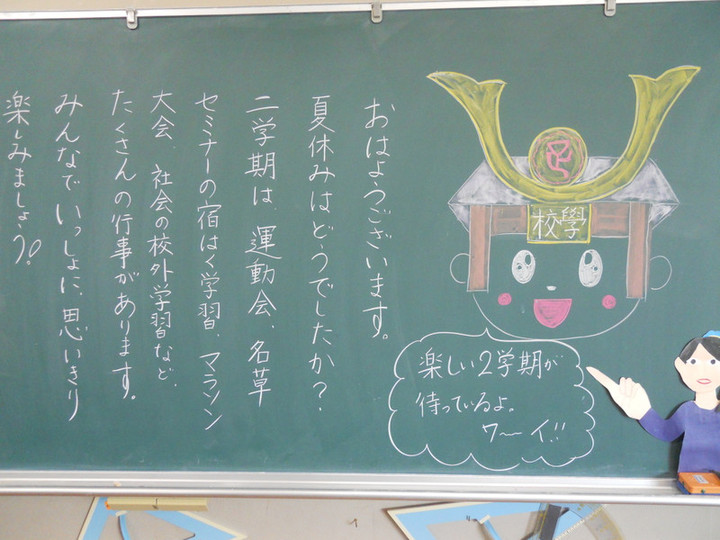 おはようございます。
夏休みはどうでしたか？
二学期は、運動会、名草
セミナーの宿はく学習、マラソン
大会、社会の校外学習など、
たくさんの行事があります。
みんなでいっしょに、思いきり
楽しみましょう。
學校
楽しい2学期が
待っているよ。
ワ～イ!!